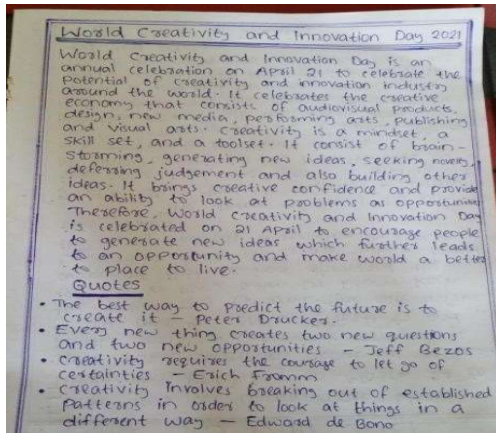 World Creativity and Innovation Day 2021
World Creativity and Innovation Day is an
annual celebration on April 21 to celebrate the
potential of creativity and innovation industry
around the world. It celebrates the creative
economy that consists of audiovisual products,
design, new media, performing arts, publishing
and visual arts. Creativity is a mindset, a
skill set, and a toolset. It consist of brain-
storming, generating new ideas, seeking novelty,
deferring judgement and also building other
ideas. It brings creative confidence and provide
an ability to look at problems as opportunities
Therefore, World Creativity and Innovation Day
is celebrated on 21 April to encourage people
to generate new ideas which further leads
to an opportunity and make world a better
to place to live.
Quotes
• The best way to predict the future is to
create it - Peter Drucker.
• Every new thing creates two new questions
and two new opportunities - Jeff Bezos
• Creativity requires the courage to let go of
certainties - Erich Fromm
• Creativity involves breaking out of established
patterns in order to look at things in a
different way - Edward de Bono